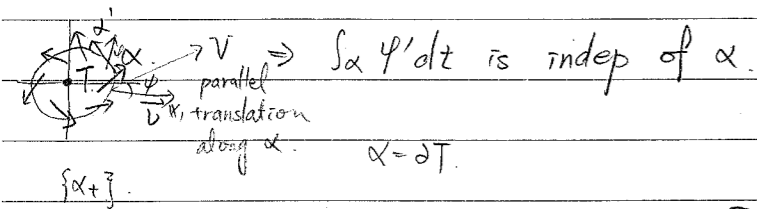 α'
α
V ⇒ ∫α φ'dt is indep of α.
T
φ
parallel
translation
along α.
α = ∂T.
{α_t}.